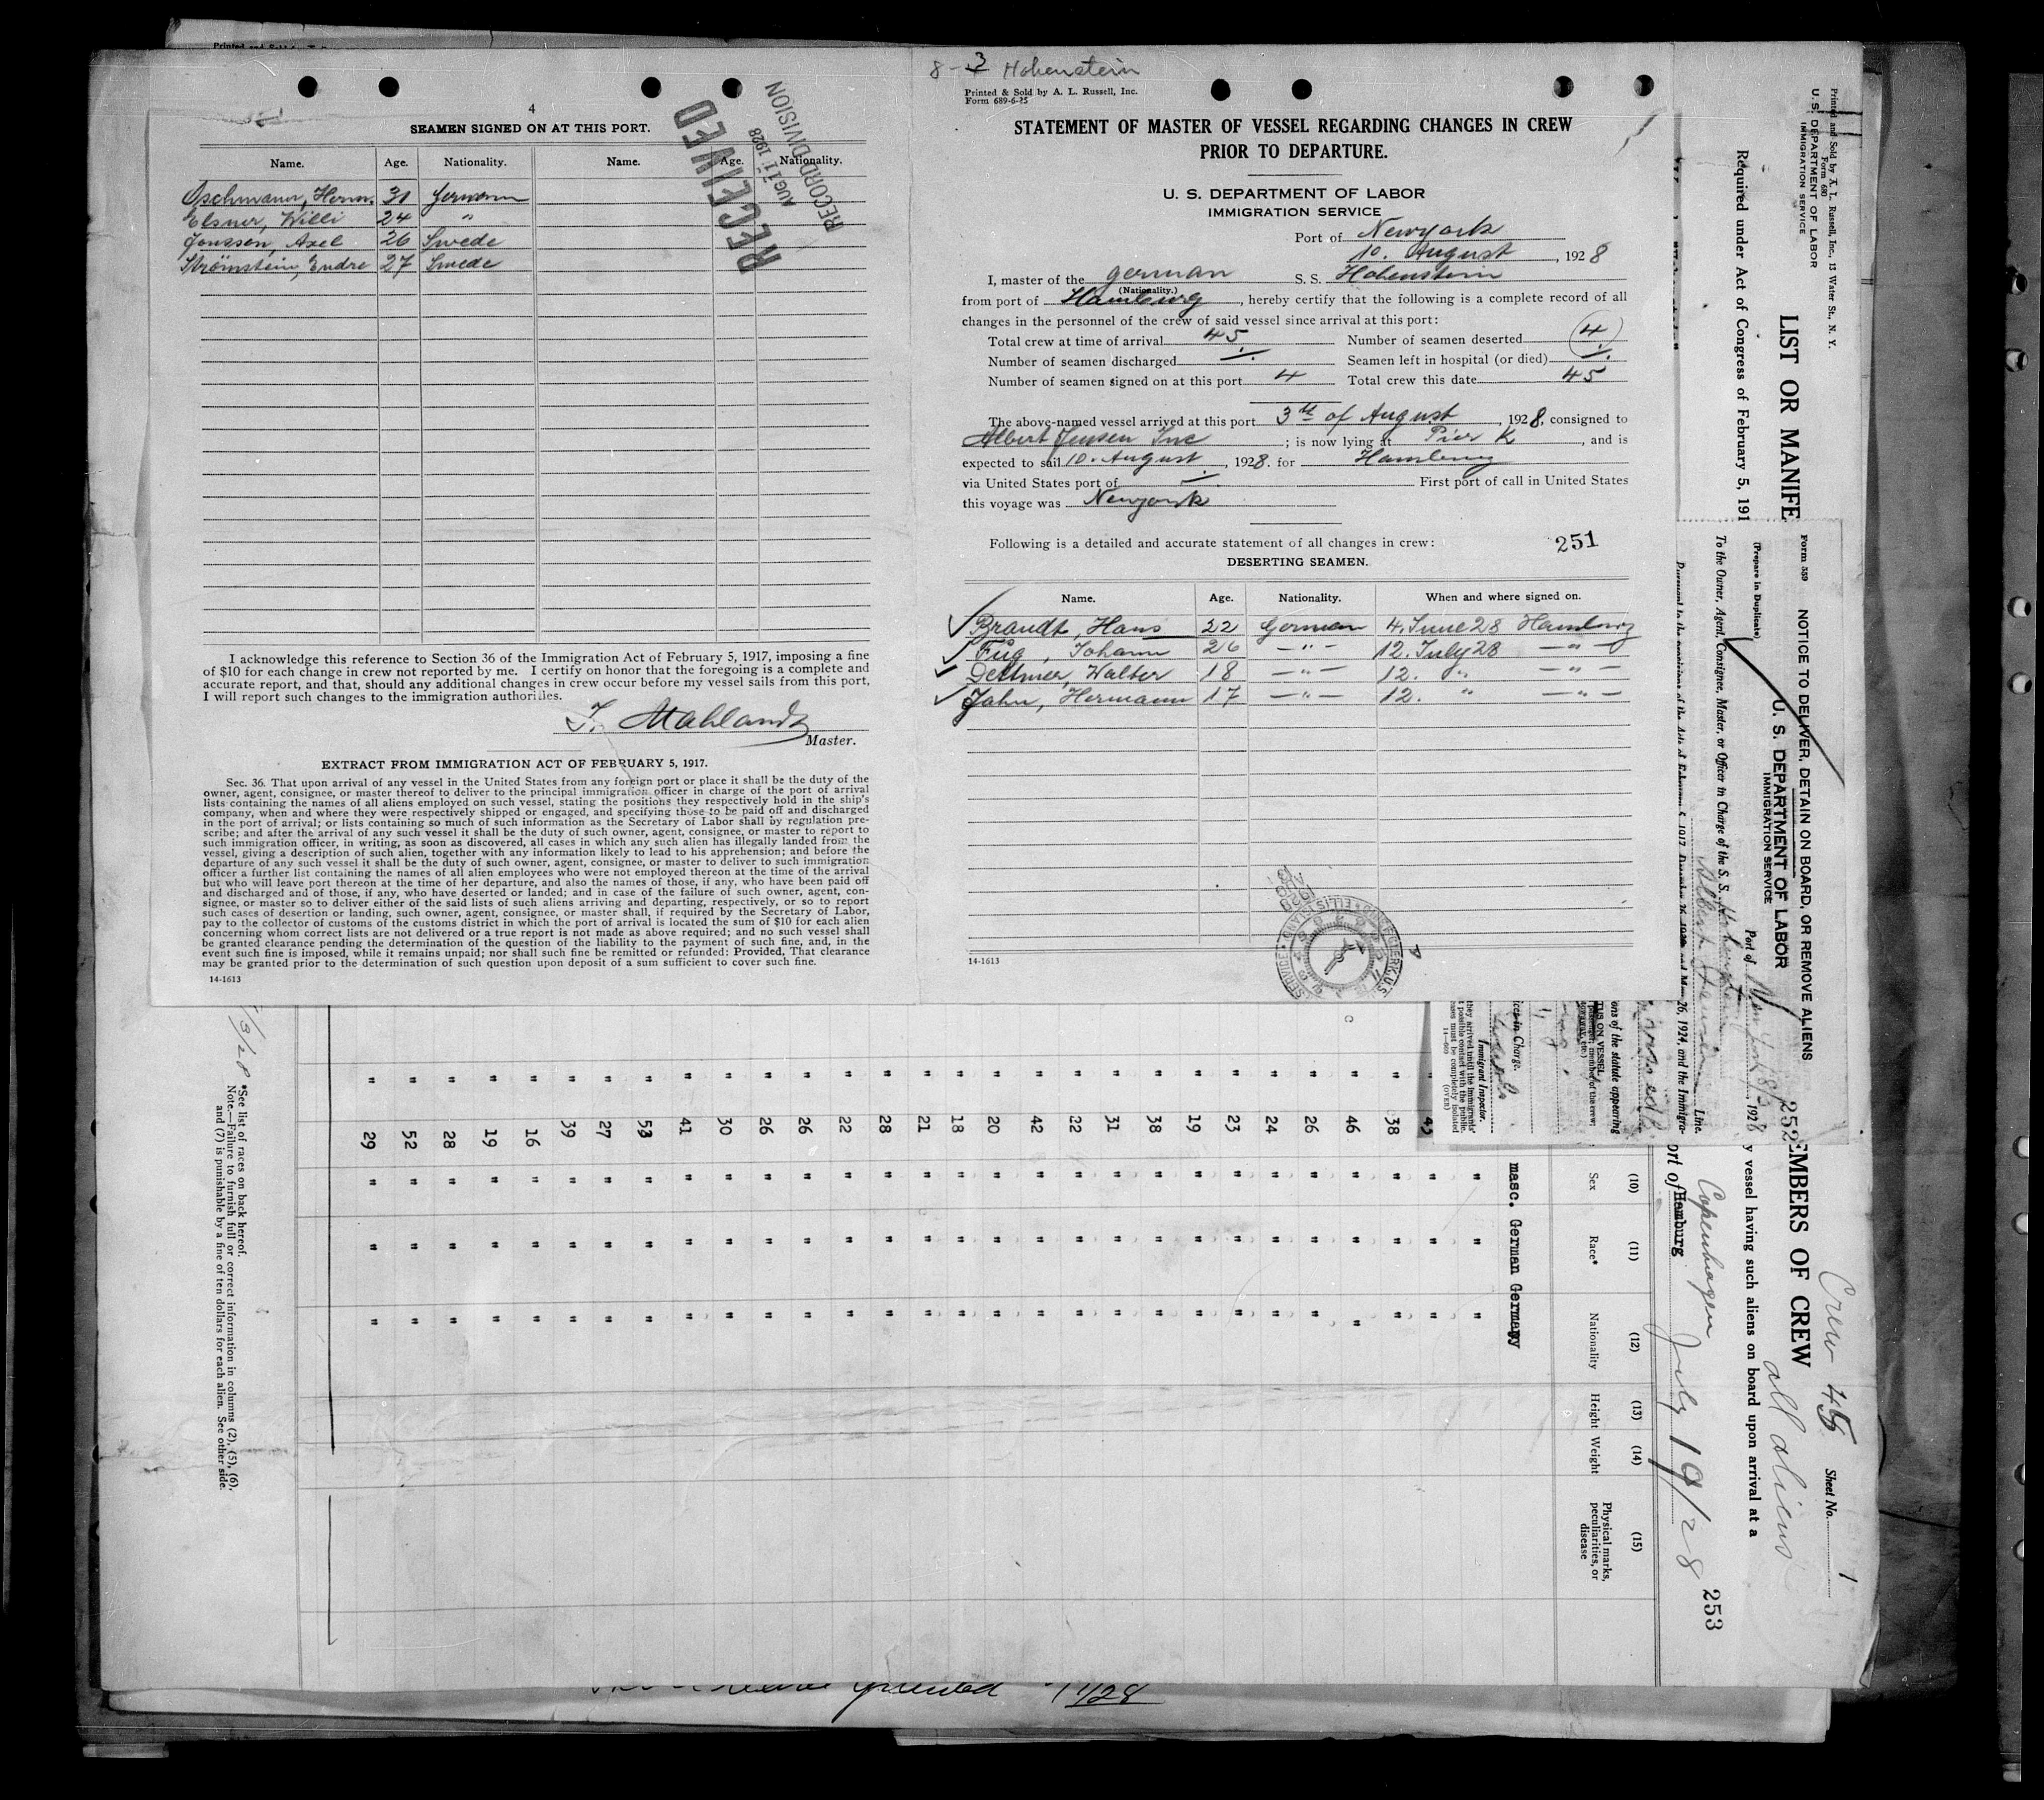 4
SEAMEN SIGNED ON AT THIS PORT.
Name. Age. Nationality. Name. Age. Nationality.
Oschmann, Herm. 31 German
Elsner, Willi 24 "
Jonssen, Axel 26 Swede
Strömstein, Endre 27 Swede
RECEIVED
AUG 11 1928
RECORD DIVISION
I acknowledge this reference to Section 36 of the Immigration Act of February 5, 1917, imposing a fine
of $10 for each change in crew not reported by me. I certify on honor that the foregoing is a complete and
accurate report, and that, should any additional changes in crew occur before my vessel sails from this port,
I will report such changes to the immigration authorities.
Master.
EXTRACT FROM IMMIGRATION ACT OF FEBRUARY 5, 1917.
Sec. 36. That upon arrival of any vessel in the United States from any foreign port or place it shall be the duty of the
owner, agent, consignee, or master thereof to deliver to the principal immigration officer in charge of the port of arrival
lists containing the names of all aliens employed on such vessel, stating the positions they respectively hold in the ship's
company, when and where they were respectively shipped or engaged, and specifying those to be paid off and discharged
in the port of arrival; or lists containing so much of such information as the Secretary of Labor shall by regulation pre-
scribe; and after the arrival of any such vessel it shall be the duty of such owner, agent, consignee, or master to report to
such immigration officer, in writing, as soon as discovered, all cases in which any such alien has illegally landed from the
vessel, giving a description of such alien, together with any information likely to lead to his apprehension; and before the
departure of any such vessel it shall be the duty of such owner, agent, consignee, or master to deliver to such immigration
officer a further list containing the names of all alien employees who were not employed thereon at the time of the arrival
but who will leave port thereon at the time of her departure, and also the names of those, if any, who have been paid off
and discharged and of those, if any, who have deserted or landed; and in case of the failure of such owner, agent, con-
signee, or master so to deliver either of the said lists of such aliens arriving and departing, respectively, or so to report
such cases of desertion or landing, such owner, agent, consignee, or master shall, if required by the Secretary of Labor,
pay to the collector of customs of the customs district in which the port of arrival is located the sum of $10 for each alien
concerning whom correct lists are not delivered or a true report is not made as above required; and no such vessel shall
be granted clearance pending the determination of the question of the liability to the payment of such fine, and, in the
event such fine is imposed, while it remains unpaid; nor shall such fine be remitted or refunded: Provided, That clearance
may be granted prior to the determination of such question upon deposit of a sum sufficient to cover such fine.
14-1613
8-3 Hohenstein
Printed & Sold by A. L. Russell, Inc.
Form 689-6-25
STATEMENT OF MASTER OF VESSEL REGARDING CHANGES IN CREW
PRIOR TO DEPARTURE.
U. S. DEPARTMENT OF LABOR
IMMIGRATION SERVICE
Port of Newyork
10. August, 1928
I, master of the german S. S. Hohenstein
(Nationality.)
from port of Hamburg, hereby certify that the following is a complete record of all
changes in the personnel of the crew of said vessel since arrival at this port:
Total crew at time of arrival 45 Number of seamen deserted 4
Number of seamen discharged —. Seamen left in hospital (or died) —.
Number of seamen signed on at this port 4 Total crew this date 45
The above-named vessel arrived at this port 3th of August, 1928, consigned to
Albert Jensen Inc; is now lying at Pier K, and is
expected to sail 10. August, 1928. for Hamburg
via United States port of —. First port of call in United States
this voyage was Newyork
Following is a detailed and accurate statement of all changes in crew: 251
DESERTING SEAMEN.
Name. Age. Nationality. When and where signed on.
Brandt, Hans 22 German 4. June 28 Hamburg
Füg, Johann 26 —"— 12. July 28 —"—
Dettmer, Walter 18 —"— 12. " —"—
Jahn, Hermann 17 —"— 12. " —"—
14-1613
Printed and Sold by A. L. Russell, Inc., 13 Water St., N. Y.
Form 680
U. S. DEPARTMENT OF LABOR
IMMIGRATION SERVICE
LIST OR MANIFE
EMBERS OF CREW
Required under Act of Congress of February 5, 191
y vessel having such aliens on board upon arrival at a
Crew 45
all aliens
Sheet No. 1
ort of Hamburg
Copenhagen July 19/28
253
Form 559
NOTICE TO DELIVER, DETAIN ON BOARD, OR REMOVE ALIENS
(Prepare in Duplicate)
U. S. DEPARTMENT OF LABOR
IMMIGRATION SERVICE
Port of New York 8/3, 1928
252
To the Owner, Agent, Consignee, Master, or Officer in Charge of the S. S. Hohenstein
Line.
ons of the statute appearing
Immigrant Inspector.
14—669
(OVER)
(10) (11) (12) (13) (14) (15)
Sex Race* Nationality Height Weight Physical marks, peculiarities, or disease
masc. German Germany
38
46
26
24
23
19
38
22
42
20
18
21
28
22
26
26
30
41
53
27
39
16
19
28
52
29
*See list of races on back hereof.
Note.—Failure to furnish full or correct information in columns (2), (5), (6),
and (7) is punishable by a fine of ten dollars for each alien. See other side.
granted